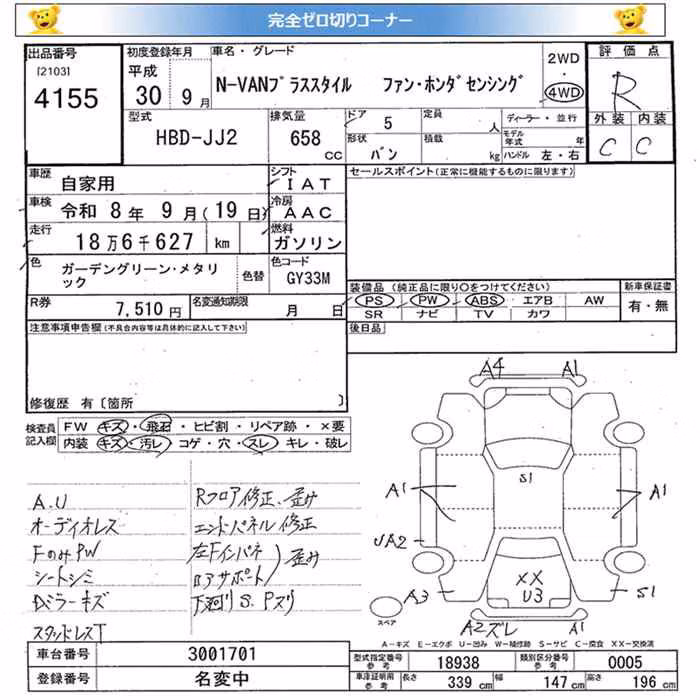 完全ゼロ切りコーナー
出品番号
[2103]
4155
初度登録年月
平成
30 9月
車名・グレード
N-VANプラススタイル ファン・ホンダセンシング
2WD
・
4WD
評価点
R
外装 内装
C C
型式
HBD-JJ2
排気量
658
CC
ドア 5
形状
バン
定員
人
積載
kg
ディーラー・並行
モデル年式 年
ハンドル 左・右
車歴
自家用
シフト
IAT
車検
令和 8年 9月(19日)
冷房
AAC
走行
18万6千627 km
燃料
ガソリン
色
ガーデングリーン・メタリック
色替
色コード
GY33M
R券
7,510円
名変通知期限
月 日
セールスポイント(正常に機能するものに限ります)
装備品(純正品に限り○をつけてください)
PS PW ABS エアB AW
SR ナビ TV カワ
新車保証書
有・無
後日品
注意事項申告欄(不具合内容等は具体的に記入して下さい)
修復歴 有〔箇所 〕
検査員
記入欄
FW キズ・飛石・ヒビ割・リペア跡・×要
内装 キズ・汚レ・コゲ・穴・スレ・キレ・破レ
A.U
オーディオレス
FのみPW
シートシミ
Dミラーキズ
スタッドレスT
Rフロア修正、歪み
エンドパネル修正
左Fインパネ
歪み
下廻りS、Pズリ
A4 A1
A1
S1
A1
UA2
XX
U3
A3
S1
A2ズレ A1
スペア
A-キズ E-エクボ U-凹み W-補修跡 S-サビ C-腐食 XX-交換済
車台番号
3001701
登録番号
名変中
型式指定番号
参考
18938
類別区分番号
参考
0005
車庫証明用
参考
長さ 339 cm
幅 147 cm
高さ 196 cm